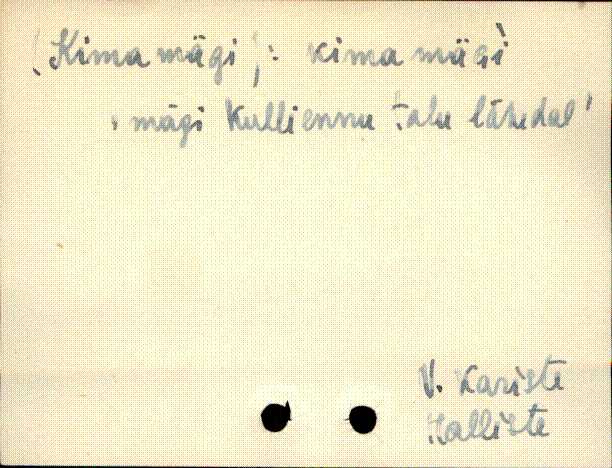 (Kima mägi): kima mäGì
' mägi Kulliennu talu lähedal '
V. Kariste
Halliste